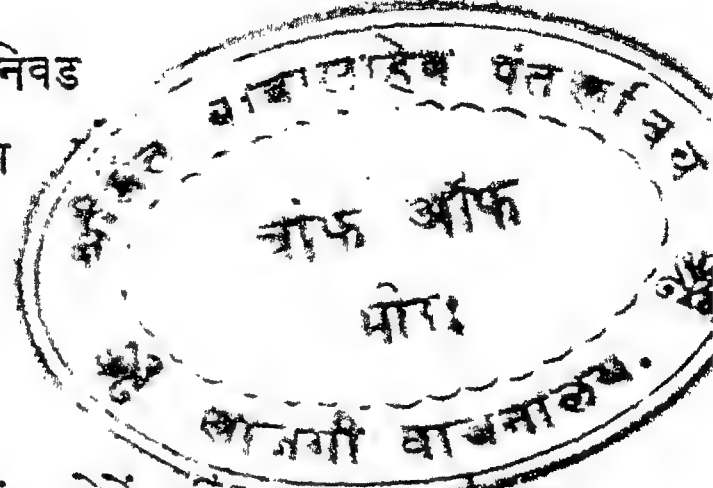 निवड
श्रीमंत बाबासाहेब पंत सचिव
चीफ ऑफ
भोर:
खाजगी वाचनालय.